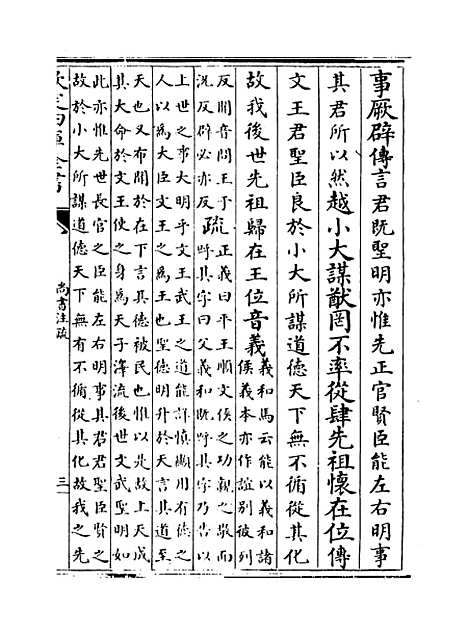 事厥辟傳言君既聖明亦惟先正官賢臣能左右明事
其君所以然越小大謀猷罔不率從肆先祖懷在位傳
文王君聖臣良於小大所謀道德天下無不循從其化
故我後世先祖歸在王位音義
義和馬云能以義和諸
侯義本亦作誼别彼列
反聞音問王于
况反辟必亦反
疏
正義曰平王順文侯之功親之敬而
呼其字曰父義和既呼其字乃告以
上世之事大明乎文王武王之道能詳慎顯用有德之
人以為大臣文王之為王也聖德明升於天言其道至
天也又布聞於在下言其德被民也惟以是故上天成
其大命於文王使之身為天子澤流後世文武聖明如
此亦惟先世長官之臣能左右明事其君君聖臣賢之
故於小大所謀道德天下無有不循從其化故我之先
欽定四庫全書
尚書注疏
三